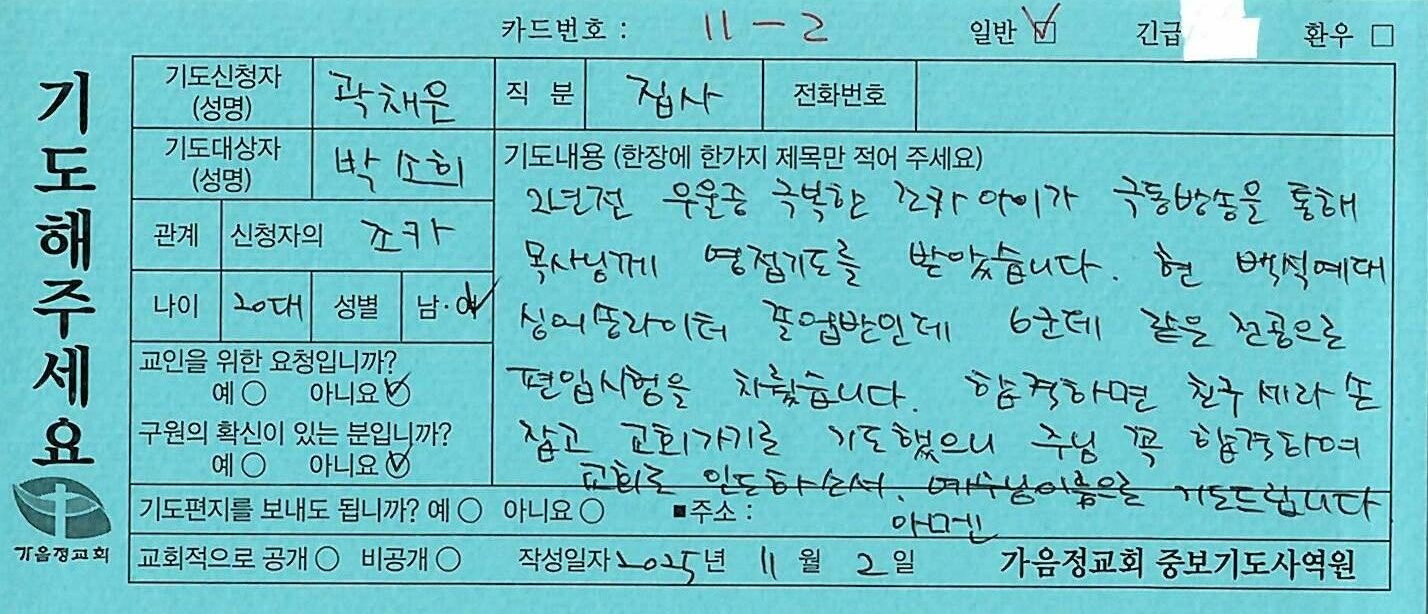 카드번호 : 11-2 일반 ☑ 긴급 환우 □
기도해주세요
기도신청자 (성명) 곽채은 직 분 집사 전화번호
기도대상자 (성명) 박소희
관계 신청자의 조카
나이 20대 성별 남·여
교인을 위한 요청입니까?
예○ 아니요○
구원의 확신이 있는 분입니까?
예○ 아니요○
기도내용 (한장에 한가지 제목만 적어 주세요)
2년전 우울증 극복한 조카아이가 극동방송을 통해
목사님께 영접기도를 받았습니다. 현 백석예대
싱어쏭라이터 졸업반인데 6군데 같은 전공으로
편입시험을 치뤘습니다. 합격하면 친구 세라 손
잡고 교회가기로 기도했으니 주님 꼭 합격하여
교회로 인도하소서. 예수님이름으로 기도드립니다
아멘
기도편지를 보내도 됩니까? 예○ 아니요○ ■주소 :
교회적으로 공개○ 비공개○ 작성일자 2025년 11월 2일 가음정교회 중보기도사역원
가음정교회